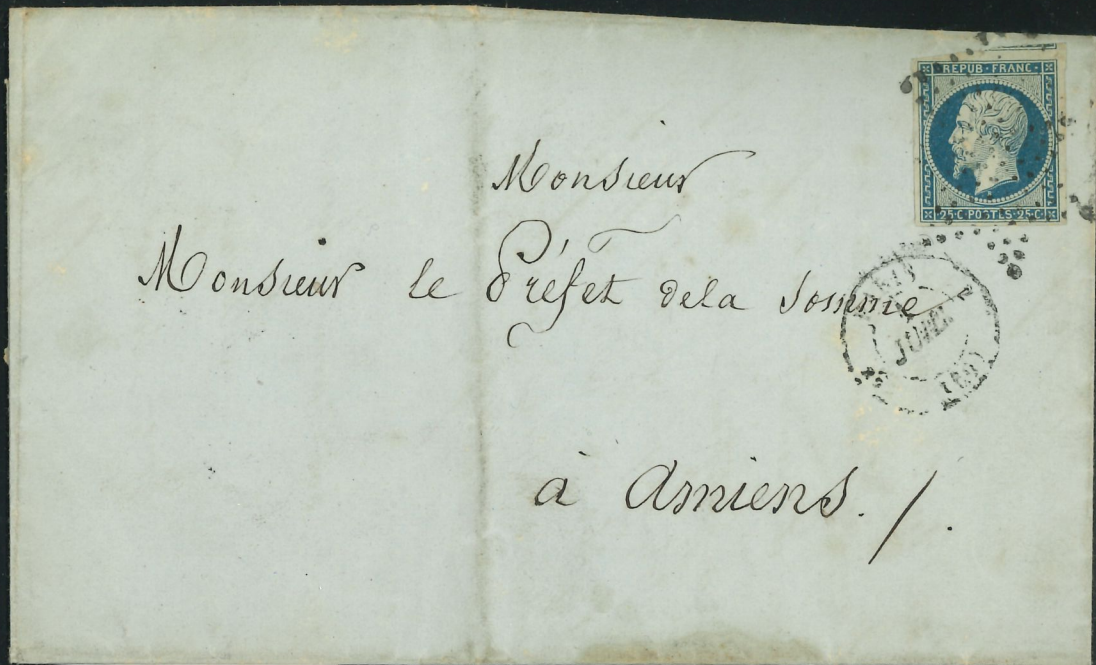 REPUB·FRANC·
25·C·POSTES·25·C·
Monsieur
Monsieur le Préfet dela Somme
PARIS
JUIL
(60)
à Amiens. /.